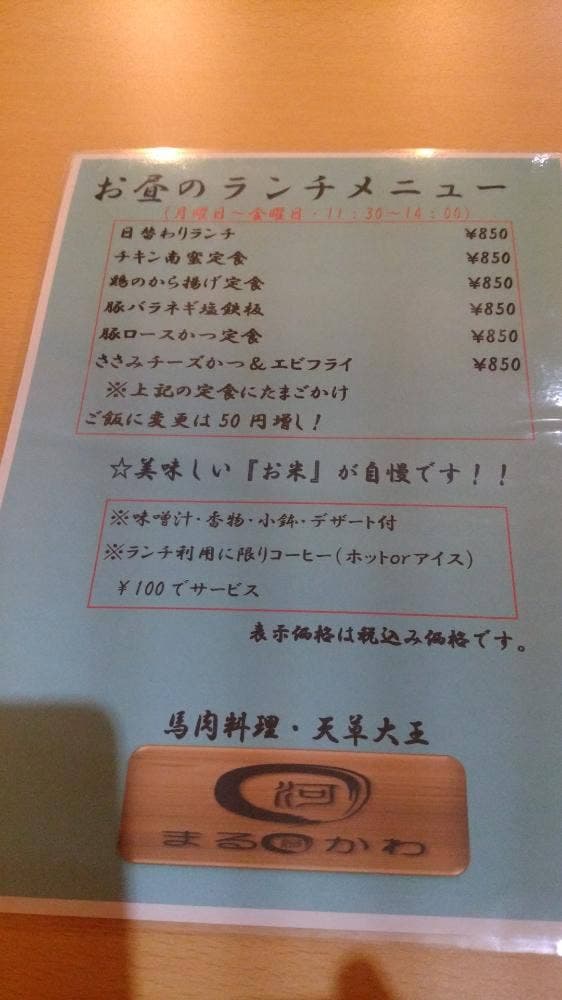 お昼のランチメニュー
(月曜日～金曜日・11:30～14:00)
日替わりランチ ¥850
チキン南蛮定食 ¥850
鶏のから揚げ定食 ¥850
豚バラネギ塩鉄板 ¥850
豚ロースかつ定食 ¥850
ささみチーズかつ&エビフライ ¥850
※上記の定食にたまごかけ
ご飯に変更は50円増し!
☆美味しい『お米』が自慢です!!
※味噌汁・香物・小鉢・デザート付
※ランチ利用に限りコーヒー(ホットorアイス)
¥100でサービス
表示価格は税込み価格です。
馬肉料理・天草大王
河
まる かわ